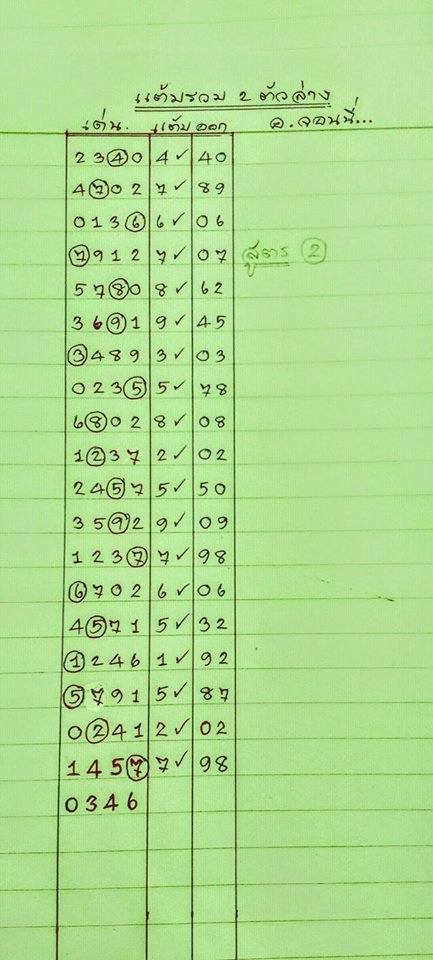 แต้มรวม 2 ตัวล่าง
เด่น. แต้ม ออก อ.จอนนี่...
2340 4✓ 40
4702 7✓ 89
0136 6✓ 06
7912 7✓ 07 สูตร ②
5780 8✓ 62
3691 9✓ 45
3489 3✓ 03
0235 5✓ 78
6802 8✓ 08
1237 2✓ 02
2457 5✓ 50
3592 9✓ 09
1237 7✓ 98
6702 6✓ 06
4571 5✓ 32
1246 1✓ 92
5791 5✓ 87
0241 2✓ 02
1457 7✓ 98
0346